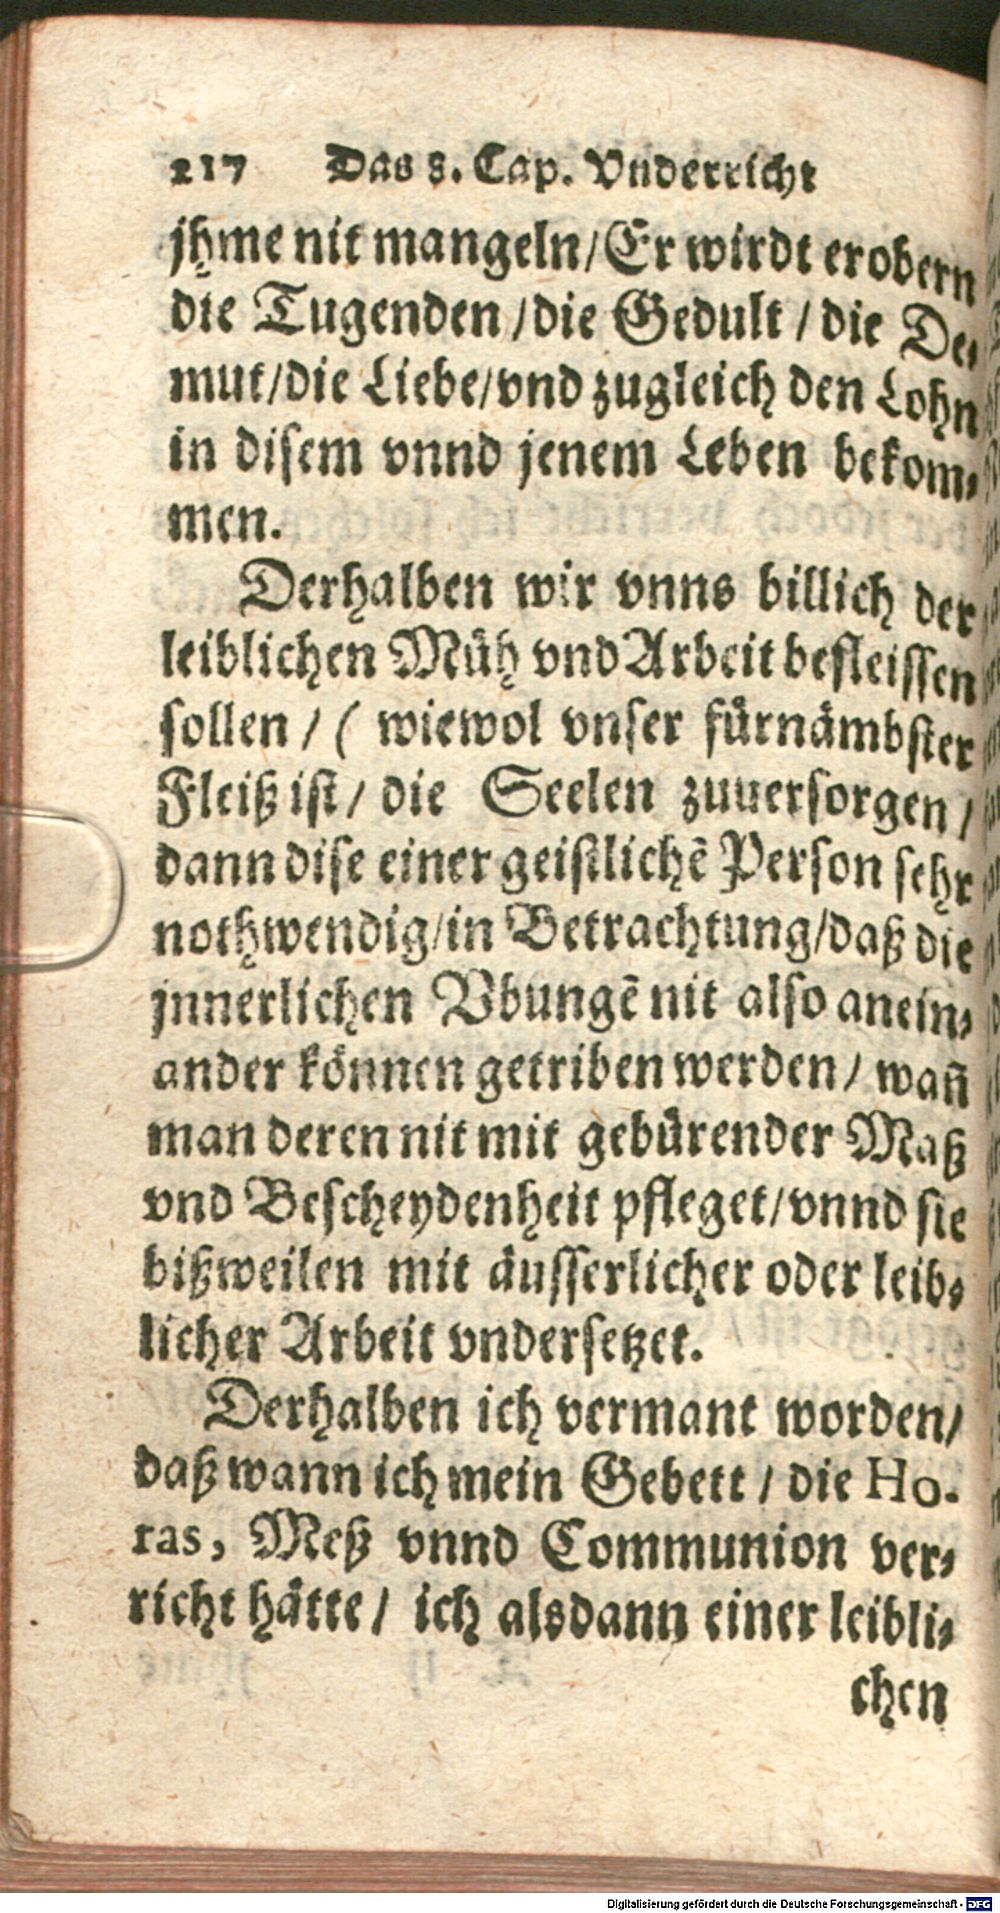 217 Das 8. Cap. Vnderricht
jhme nit mangeln/Er wirdt erobern
die Tugenden/die Gedult/die De-
mut/die Liebe/vnd zugleich den Lohn
in disem vnnd jenem Leben bekom-
men.
Derhalben wir vnns billich der
leiblichen Müh vnd Arbeit befleissen
sollen/(wiewol vnser fürnämbster
Fleiß ist/die Seelen zuuersorgen/
dann dise einer geistlichẽ Person sehr
nothwendig/in Betrachtung/daß die
jnnerlichen Vbungẽ nit also anein-
ander können getriben werden/wañ
man deren nit mit gebürender Maß
vnd Bescheydenheit pfleget/vnnd sie
bißweilen mit äusserlicher oder leib-
licher Arbeit vndersetzet.
Derhalben ich vermant worden/
daß wann ich mein Gebett/die Ho-
ras, Meß vnnd Communion ver-
richt hätte/ich alsdann einer leibli-
chen
Digitalisierung gefördert durch die Deutsche Forschungsgemeinschaft - DFG